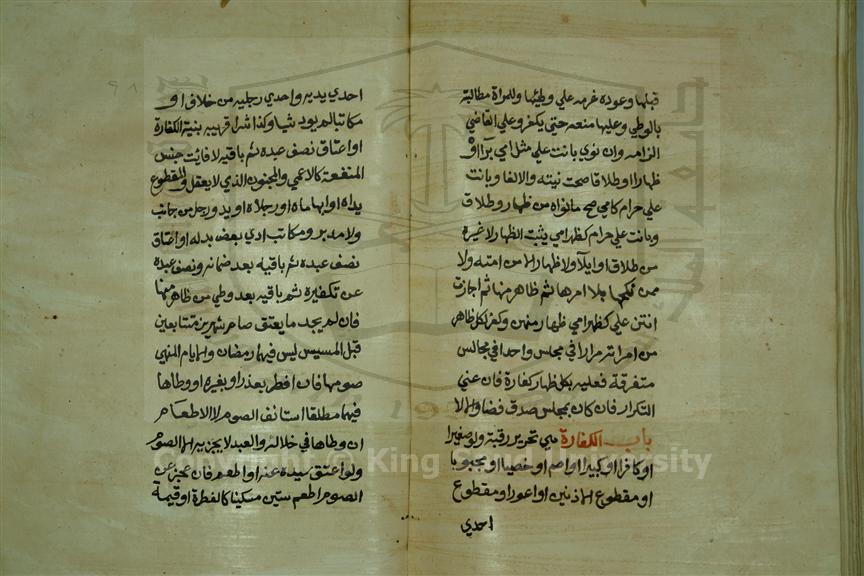 قبلها وعوده غرمه علي وطيها وللمراة مطالبة
بالوطي وعليها منعه حتي يكفر وعلي القاضي
الزامه وان نوي بانت علي مثل امي برا او
ظهارا او طلاقا صحت نيته والا لغا وبانت
علي حرام كامي صح مانواه من ظهار وطلاق
وبانت علي حرام كظهر امي يثبت الظهار لا غيره
من طلاق او ايلا ولا ظهار الا من امته ولا
ممن نكحها بلا امرها ثم ظاهر منها ثم اجازت
انتن علي كظهر امي ظهار منهن وكفر لكل ظاهر
من امراته مرارا في مجلس واحد اوفي مجالس
متفرقة فعليه بكل ظهار كفارة فان عني
التكرار فان كان بمجلس صدق قضا والا لا
باب الكفارة هي تحرير رقبة ولو صغيرا
او كافرا او كبيرا او اصم او خصيا او مجبوبا
او مقطوع الاذنين او اعور او مقطوع
احدي
احدي يديه واحدي رجليه من خلاف او
مكاتبا لم يود شيا وكذا شرا قريبه بنية الكفارة
او اعتاق نصف عبده ثم باقيه لا فايت جنس
المنفعة كالاعمي والمجنون الذي لا يعقل والمقطوع
يداه او ابهاماه او رجلاه او يد ورجل من جانب
ولا مدبر ومكاتب ادي بعض بدله او اعتاق
نصف عبده ثم باقيه بعد ضمانه ونصف عبده
عن تكفيره ثم باقيه بعد وطي من ظاهر منها
فان لم يجد ما يعتق صام شهرين متتابعين
قبل المسيس ليس فيهما رمضان والايام المنهي
صومها فان افطر بعذر او بغيره او وطاها
فيهما مطلقا استانف الصوم لا الاطعام
ان وطاها في خلاله والعبد لا يجزيه الا الصوم
ولو اعتق سيده عنه او اطعم فان عجز عن
الصوم اطعم ستين مسكينا كالفطرة او قيمة
© King Saud University